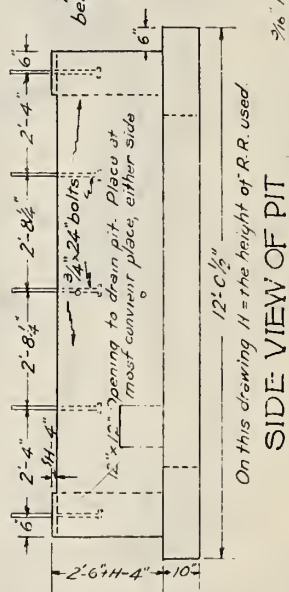 6"
2'-4"
2'-8¼"
2'-8¼"
2'-4"
6"
be
6"
H-4"
¾"x24" bolts
12"x12" Opening to drain pit. Place at
most convient place, either side
2'-6"+H-4"
10"
12'-0½"
On this drawing H = the height of R.R. used.
SIDE VIEW OF PIT